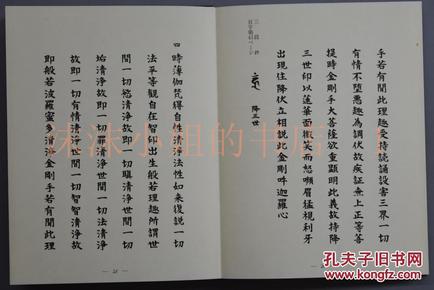 手若有聞此理趣受持讀誦設害三界一切
有情不墮惡趣為調伏故疾証無上正等菩
提時金剛手大菩薩欲重顯明此義故持降
三世印以蓮華面微笑而怒顰眉猛視利牙
出現住降伏立相説此金剛吽迦羅心
降三世
三段 鈔
四 時薄伽梵得自性清淨法性如來復説一切
法平等觀自在智印出生般若理趣所謂世
間一切慾清淨故即一切瞋清淨世間一切
垢清淨故即一切罪清淨世間一切法清淨
故即一切有情清淨世間一切智智清淨故
即般若波羅蜜多清淨金剛手若有聞此理
— 25 —
妹妹小姐的书店
孔夫子旧书网